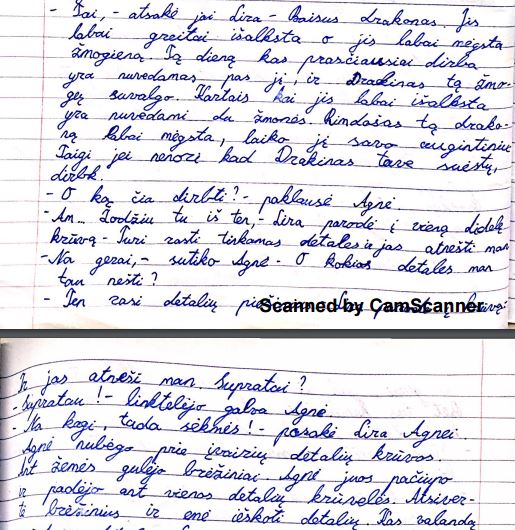 - Tai, - atsakė jai Lira - Baisus drakonas. Jis
labai greitai išalksta o jis labai mėgsta
žmogieną. Tą dieną kas prasčiausiai dirba
yra nuvedamas pas jį, ir Drakinas tą žmo-
gų suvalgo. Kartais kai jis labai išalksta
yra nuvedami du žmonės. Rimdašas tą drako-
ną labai mėgsta, laiko jį savo augintiniu
Taigi jei nenori kad Drakinas tave suėstų,
dirbk.
- O ką čia dirbti? - paklausė Agnė
- Am... Žodžiu tu iš ten, - Lira parodė į vieną didelę
krūvą - Turi rasti tinkamas detales ir jas atnešti man
- Na gerai, - sutiko Agnė - O kokias detales man
tau nešti?
- Ten rasi detalių
Scanned by CamScanner
Ir jas atneši man. Supratai?
- Supratau! - linktelėjo galva Agnė
- Na kągi, tada sėkmės! - pasakė Lira Agnei.
Agnė nubėgo prie įvairių detalių krūvos.
Ant žemės gulėjo brėžiniai. Agnė juos pačiupo
ir padėjo ant vienos detalių krūvelės. Atsiver-
tė brėžinius ir ėmė ieškoti detalių. Pas valandą